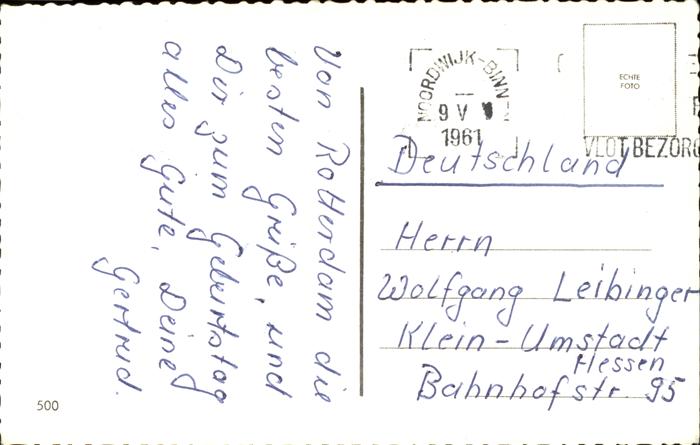 Von Rotterdam die
besten Grüße, und
Dir zum Geburtstag
alles Gute, Deine
Gertrud.
500
NOORDWIJK-BINN
9 V
1961
ECHTE
FOTO
VLOT BEZORG
Deutschland
Herrn
Wolfgang Leibinger
Klein-Umstadt
Hessen
Bahnhofstr. 95